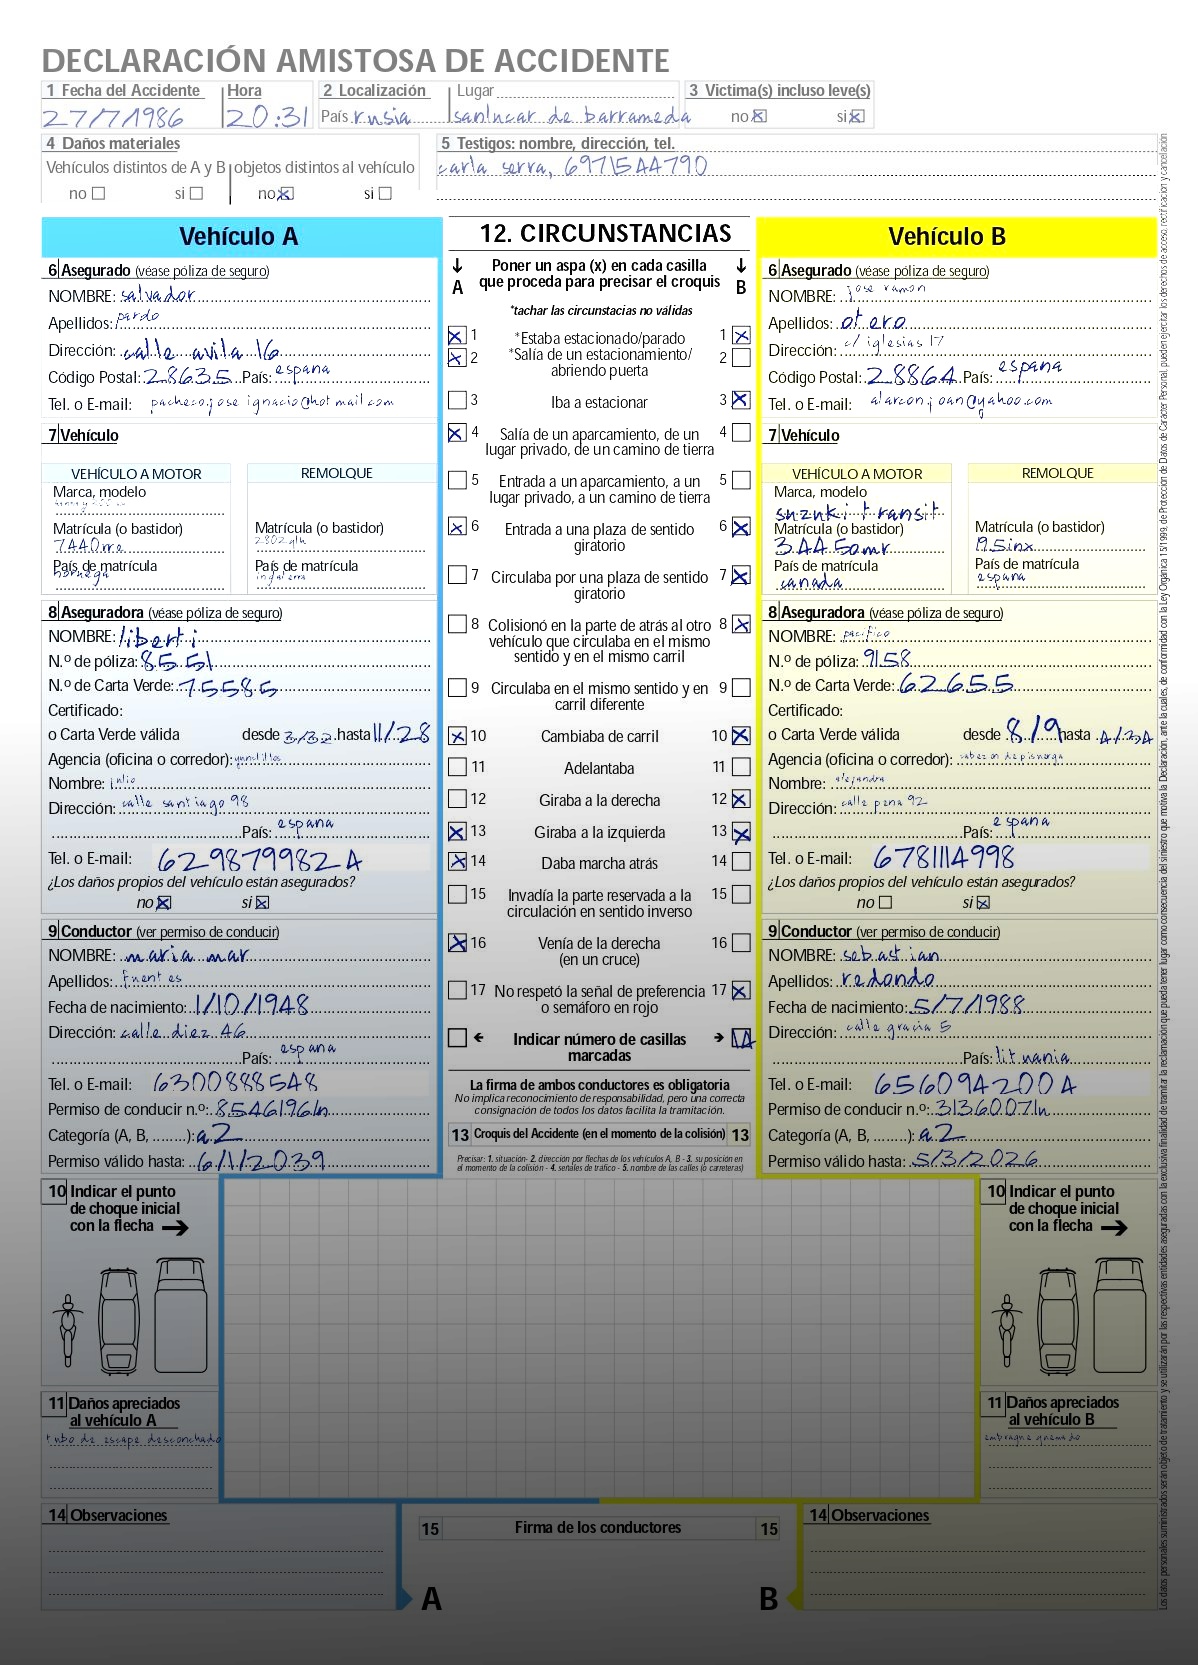 DECLARACIÓN AMISTOSA DE ACCIDENTE
1 Fecha del Accidente Hora 2 Localización Lugar 3 Victima(s) incluso leve(s)
27/7/1986 20:31 País rusia sanlucar de barrameda no si
4 Daños materiales 5 Testigos: nombre, dirección, tel.
Vehículos distintos de A y B objetos distintos al vehículo carla serra, 6971544790
no si no si
Vehículo A
6 Asegurado (véase póliza de seguro)
NOMBRE: salvador
Apellidos: pardo
Dirección: calle avila 16
Código Postal: 28635 País: espana
Tel. o E-mail: pacheco.jose ignacio@hotmail.com
7 Vehículo
VEHÍCULO A MOTOR REMOLQUE
Marca, modelo
Matrícula (o bastidor) Matrícula (o bastidor)
7440mra 2802glh
País de matrícula País de matrícula
noruega inglaterra
8 Aseguradora (véase póliza de seguro)
NOMBRE: liberti
N.º de póliza: 8551
N.º de Carta Verde: 75585
Certificado:
o Carta Verde válida desde 3/32 hasta 11/28
Agencia (oficina o corredor):
Nombre: julio
Dirección: calle santiago 98
País: espana
Tel. o E-mail: 6298799824
¿Los daños propios del vehículo están asegurados?
no si
9 Conductor (ver permiso de conducir)
NOMBRE: maria mar
Apellidos: fuentes
Fecha de nacimiento: 1/10/1948
Dirección: calle diez 46
País: espana
Tel. o E-mail: 6300888548
Permiso de conducir n.º: 8546196ln
Categoría (A, B, ........): a2
Permiso válido hasta: 6/1/2039
12. CIRCUNSTANCIAS
Poner un aspa (x) en cada casilla
A que proceda para precisar el croquis B
*tachar las circunstacias no válidas
1 *Estaba estacionado/parado 1
2 *Salía de un estacionamiento/ 2
abriendo puerta
3 Iba a estacionar 3
4 Salía de un aparcamiento, de un 4
lugar privado, de un camino de tierra
5 Entrada a un aparcamiento, a un 5
lugar privado, a un camino de tierra
6 Entrada a una plaza de sentido 6
giratorio
7 Circulaba por una plaza de sentido 7
giratorio
8 Colisionó en la parte de atrás al otro 8
vehículo que circulaba en el mismo
sentido y en el mismo carril
9 Circulaba en el mismo sentido y en 9
carril diferente
10 Cambiaba de carril 10
11 Adelantaba 11
12 Giraba a la derecha 12
13 Giraba a la izquierda 13
14 Daba marcha atrás 14
15 Invadía la parte reservada a la 15
circulación en sentido inverso
16 Venía de la derecha 16
(en un cruce)
17 No respetó la señal de preferencia 17
o semáforo en rojo
Indicar número de casillas 14
marcadas
La firma de ambos conductores es obligatoria
No implica reconocimiento de responsabilidad, pero una correcta
consignación de todos los datos facilita la tramitación.
13 Croquis del Accidente (en el momento de la colisión) 13
Precisar: 1. situación- 2. dirección por flechas de los vehículos A, B - 3. su posición en
el momento de la colisión - 4. señales de tráfico - 5. nombre de las calles (o carreteras)
Vehículo B
6 Asegurado (véase póliza de seguro)
NOMBRE: jose ramon
Apellidos: otero
Dirección: c/ iglesias 17
Código Postal: 28864 País: espana
Tel. o E-mail: alarcon.joan@yahoo.com
7 Vehículo
VEHÍCULO A MOTOR REMOLQUE
Marca, modelo
suzuki transit
Matrícula (o bastidor) Matrícula (o bastidor)
3445amr 195inx
País de matrícula País de matrícula
canada espana
8 Aseguradora (véase póliza de seguro)
NOMBRE: pacifico
N.º de póliza: 9158
N.º de Carta Verde: 62655
Certificado:
o Carta Verde válida desde 8/9 hasta 4/34
Agencia (oficina o corredor): cabezon de pisuerga
Nombre: alejandra
Dirección: calle pena 92
País: espana
Tel. o E-mail: 6781114998
¿Los daños propios del vehículo están asegurados?
no si
9 Conductor (ver permiso de conducir)
NOMBRE: sebastian
Apellidos: redondo
Fecha de nacimiento: 5/7/1988
Dirección: calle gracia 5
País: lituania
Tel. o E-mail: 6560942004
Permiso de conducir n.º: 3136007ln
Categoría (A, B, ........): a2
Permiso válido hasta: 5/3/2026
10 Indicar el punto
de choque inicial
con la flecha
11 Daños apreciados
al vehículo A
tubo de escape desconchado
10 Indicar el punto
de choque inicial
con la flecha
11 Daños apreciados
al vehículo B
embrague quemado
14 Observaciones
15 Firma de los conductores 15
A B
14 Observaciones
Los datos personales suministrados serán objeto de tratamiento y se utilizarán por las respectivas entidades aseguradas con la exclusiva finalidad de tramitar la reclamación que pueda tener lugar como consecuencia del siniestro que motiva la Declaración, ante la cuales, de conformidad con la Ley Orgánica 15/1999, de Protección de Datos de Carácter Personal, pueden ejercitar los derechos de acceso, rectificación y cancelación